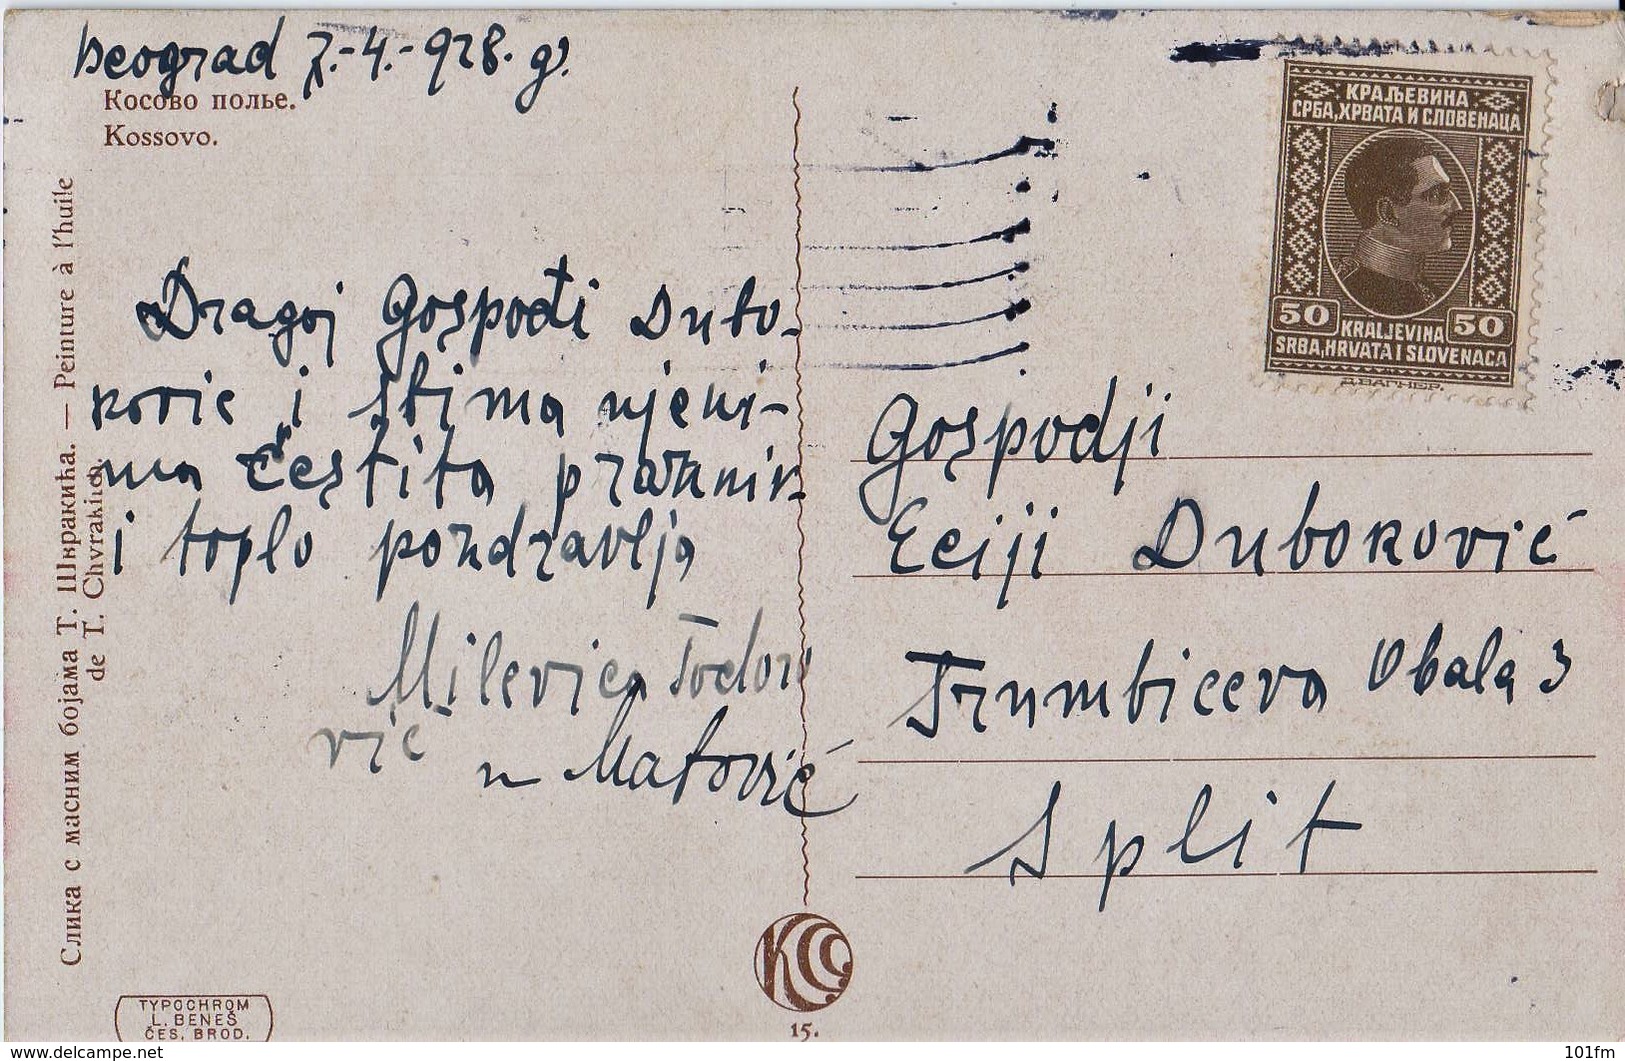 Beograd 7.-4.-928. g.
Косово поље.
Kossovo.
Слика с масним бојама Т. Швракића. — Peinture à l'huile
de T. Chvrakitch.
Dragoj Gospođi Dubo-
kovic i svima njeni-
ma čestita praznik
i toplo pozdravlja
Milevica Todoro
vić
Matović
КРАЉЕВИНА
СРБА, ХРВАТА И СЛОВЕНАЦА
50 50
KRALJEVINA
SRBA, HRVATA I SLOVENACA
Д. ВАГНЕР.
Gospodji
Eciji Duboković
Trumbiceva Obala 3
Split
15.
TYPOCHROM
L. BENEŠ
ČES. BROD.
www.delcampe.net
101fm